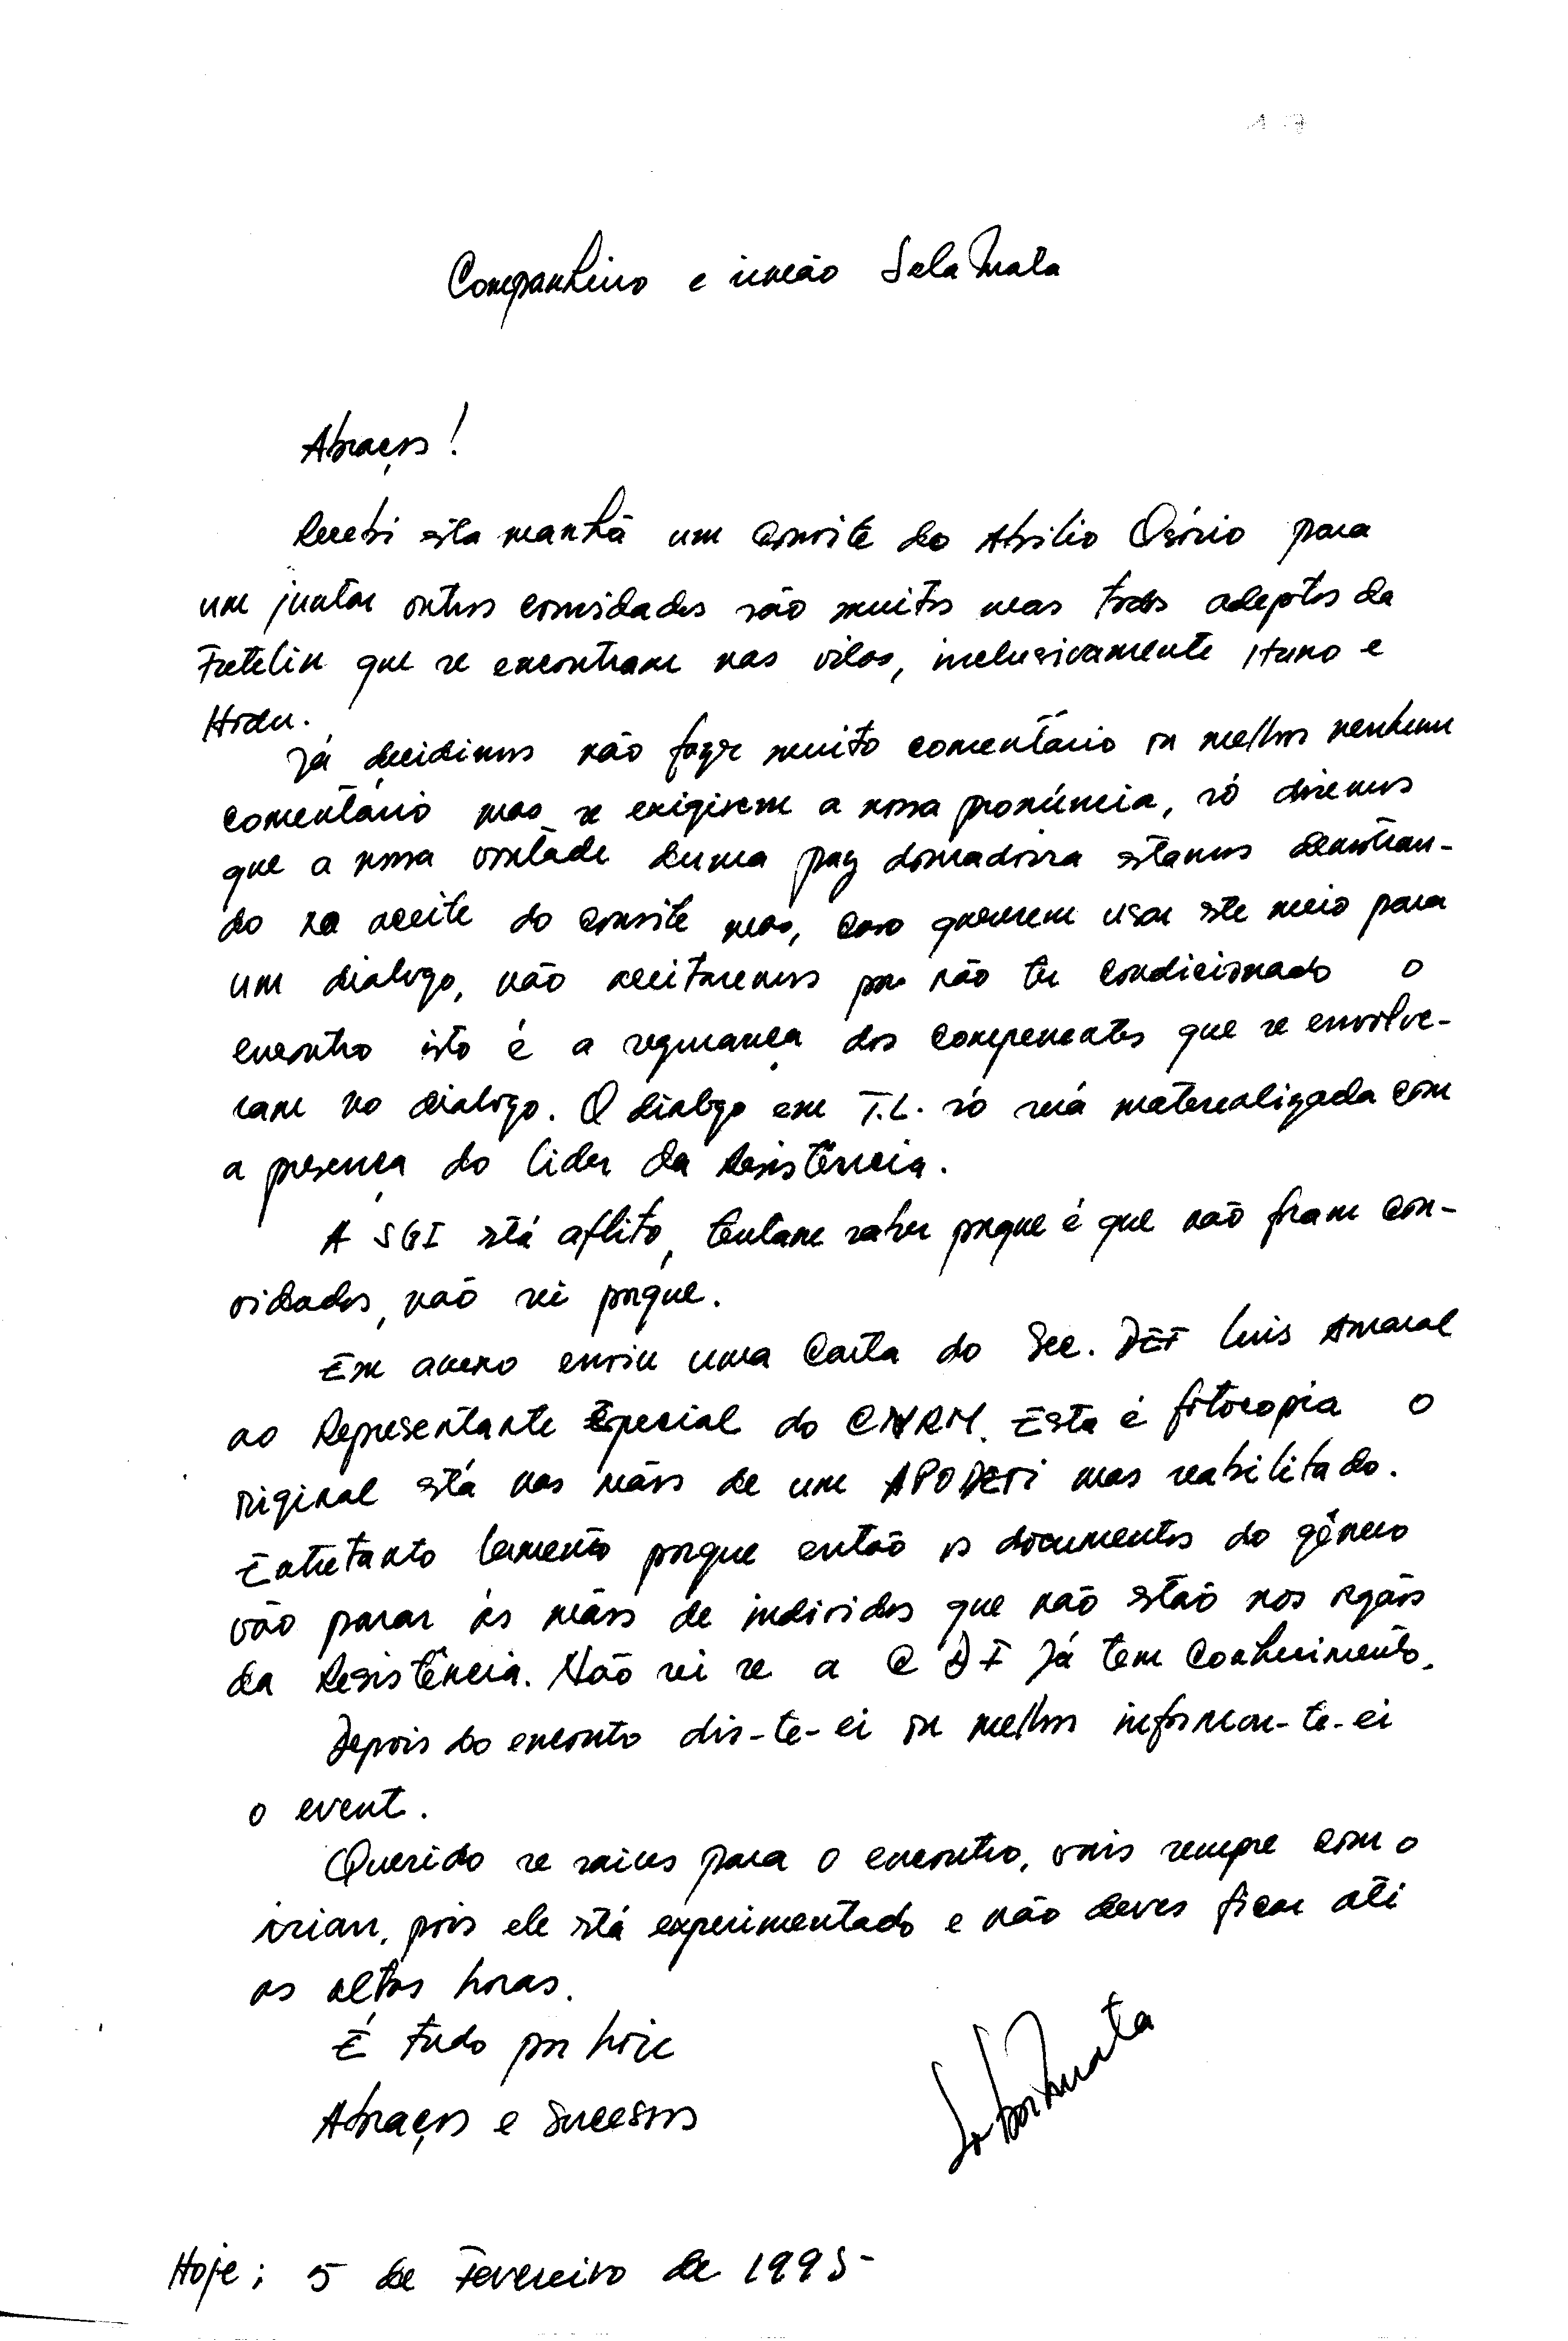 Companheiro e irmão Sala Mata
Abraços!
Recebi esta manhã um convite do Abilio Osório para
um jantar outros convidados são muitos mas todos adeptos da
Fretelin que se encontram nas vilas, inclusivamente Huno e
Hodu.
Já decidimos não fazer muito comentário ou melhor nenhum
comentário mas se exigirem a nossa pronúncia, só diremos
que a nossa vontade duma paz doradoira estamos demostran-
do na aceite do convite mas, caso quererem usar este meio para
um dialogo, não aceitaremos por não ter condicionado o
encontro isto é a segurança dos componentes que se envolve-
ram no dialogo. O dialogo em T.L. só será materealizada com
a presença do lider da Resistência.
A SGI stá aflito, tentam saber porque é que não foram con-
vidados, não sei porque.
Em anexo enviu uma Carta do Sec. DEF Luis Amaral
ao Representante Especial do CNRM. Esta é fotocopia o
original está nas mãos de um APODETI mas reabilitado.
Entretanto lamento porque então os documentos do gênero
vão parar ás mãos de individos que não estão nos orgãos
da Resistência. Não sei se a CDF Já tem Conhecimento.
Depois do encontro dir-te-ei ou melhor informar-te-ei
o event.
Querido se saires para o encontro, vais sempre com o
irian, pois ele stá experimentado e não deves ficar até
as altas horas.
É tudo por hoje
Abraços e Sucessos
Hoje; 5 de Fevereiro de 1995